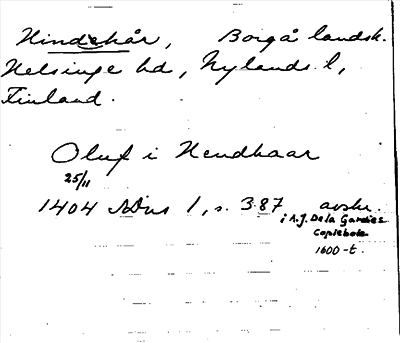 Hindehår, Borgå landsk.
Helsinge hd, Nylands l,
Finland.
Oluf i Hendhaar
25/11
1404 SDns 1, s. 387 avskr.
i A.J. De la Gardies
Copiebok
1600-t.